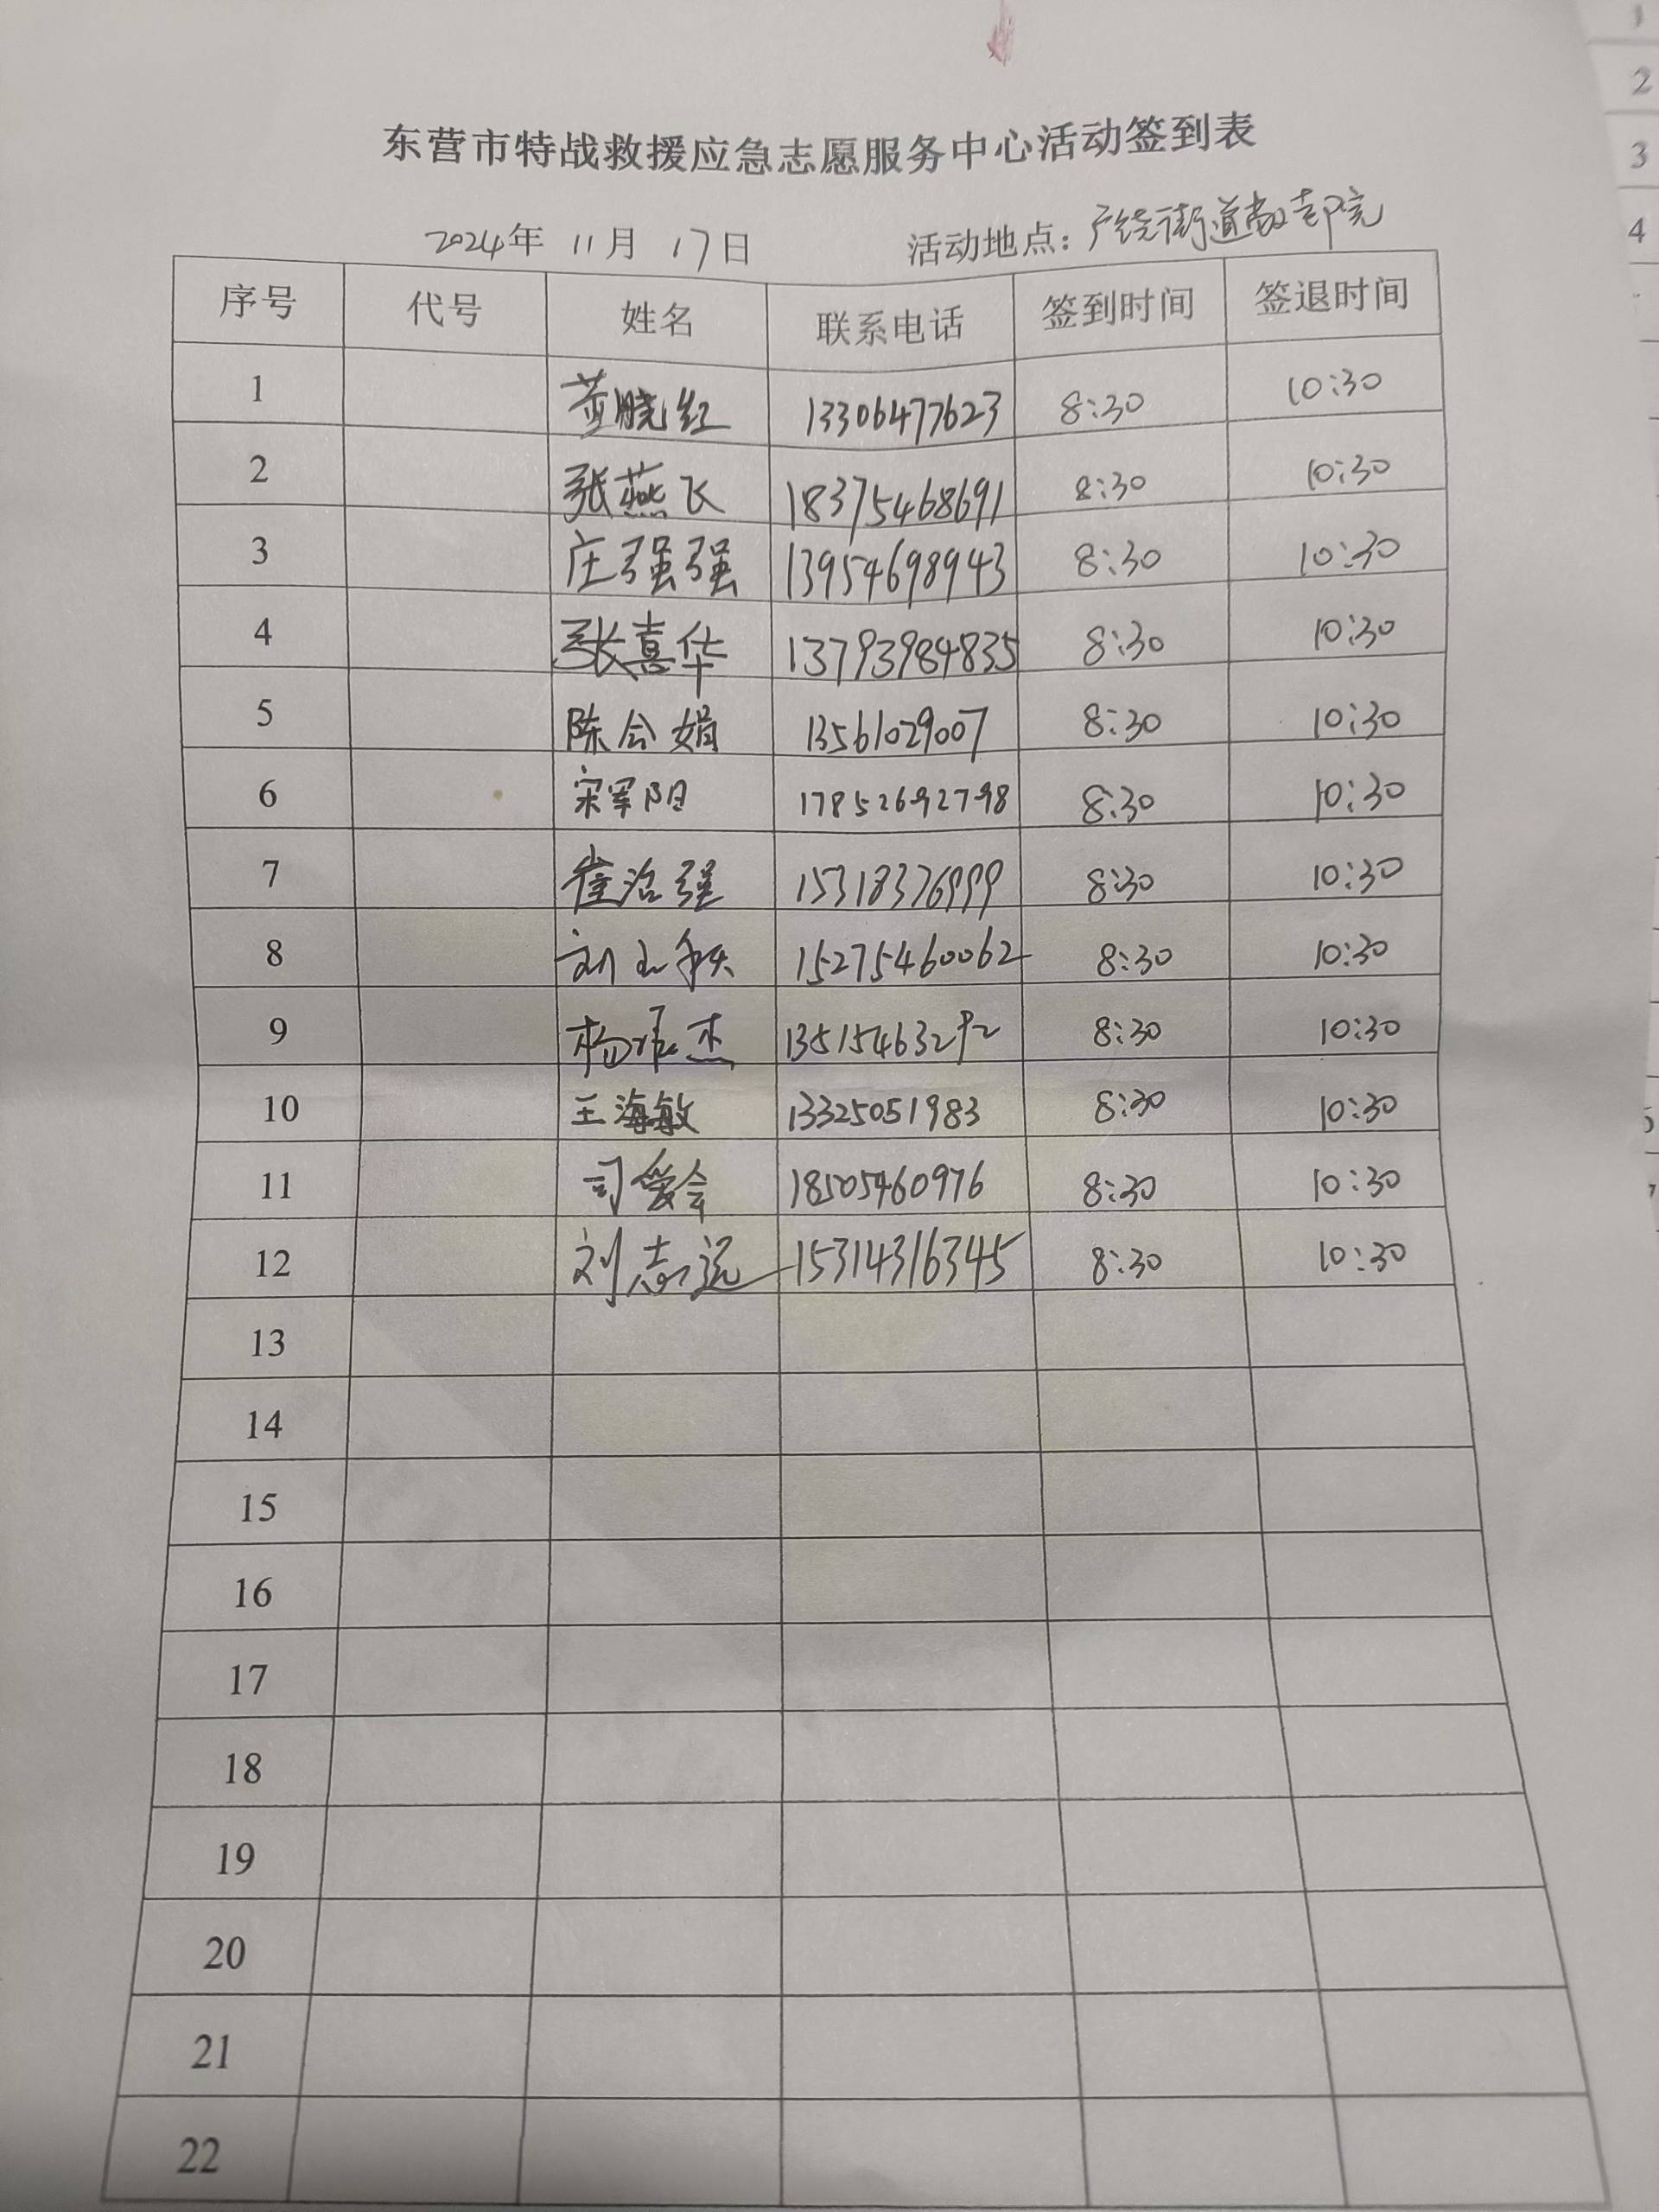 东营市特战救援应急志愿服务中心活动签到表
2024年 11月 17日 活动地点：广饶街道敬老院
序号 代号 姓名 联系电话 签到时间 签退时间
1 董晓红 13306477623 8:30 10:30
2 张燕飞 18375468691 8:30 10:30
3 庄强强 13954698943 8:30 10:30
4 张喜华 13793984835 8:30 10:30
5 陈会娟 13561029007 8:30 10:30
6 宋军阳 17852692798 8:30 10:30
7 崔洛强 15318376999 8:30 10:30
8 刘 15275460062 8:30 10:30
9 杨 杰 13515463292 8:30 10:30
10 王海敏 13325051983 8:30 10:30
11 司爱会 18505460976 8:30 10:30
12 刘志远 15314316345 8:30 10:30
13
14
15
16
17
18
19
20
21
22
1
2
3
4